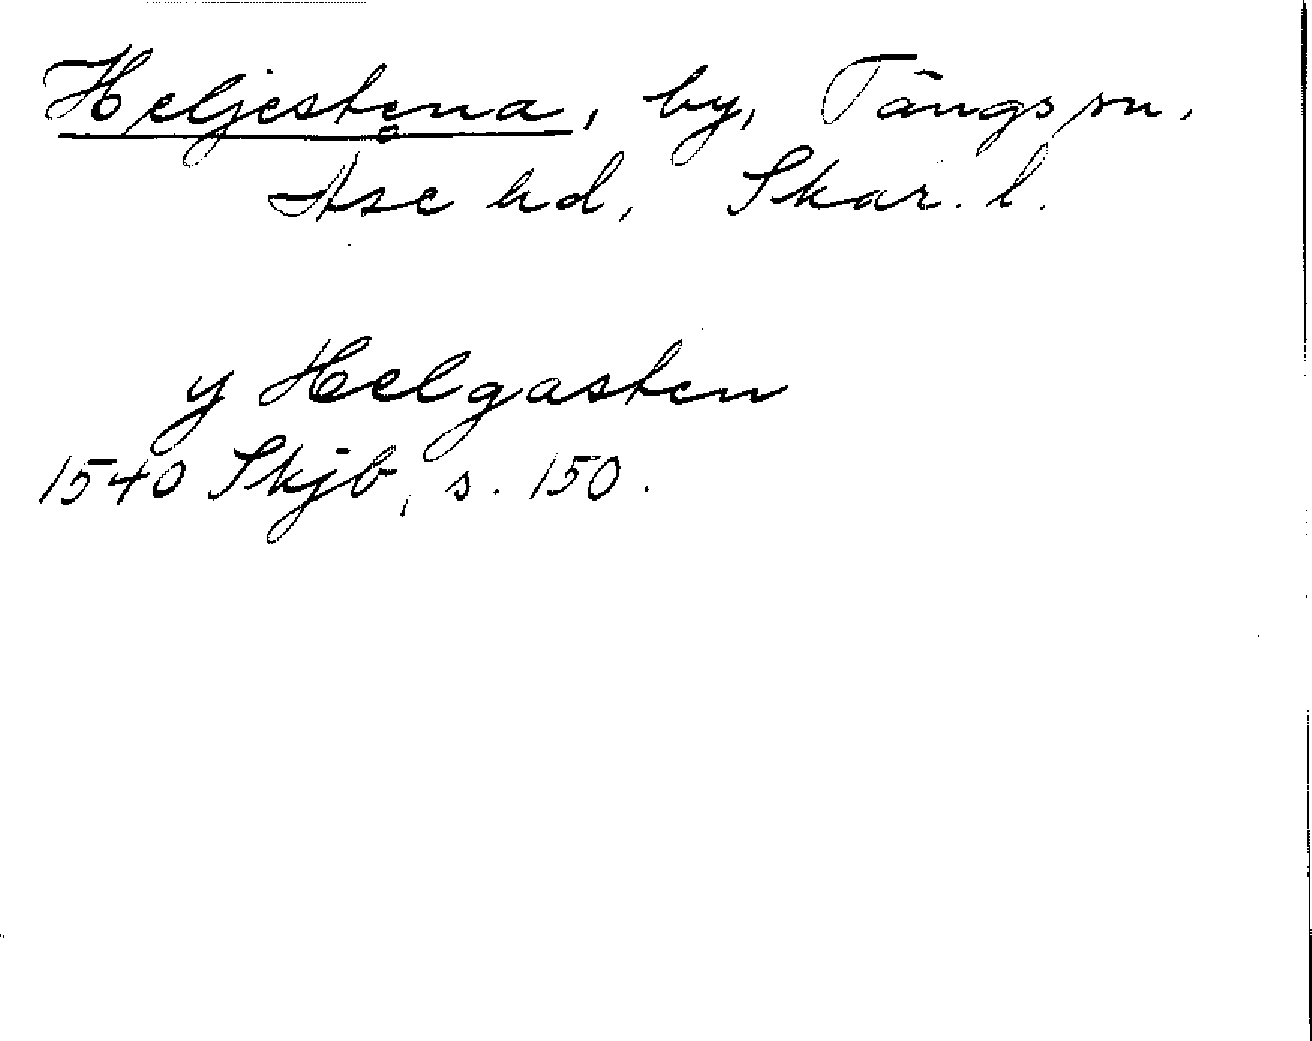 Heljestena, by, Tångs sn,
Åse hd, Skar. l.
y Helgasten
1540 Skjb, s. 150.